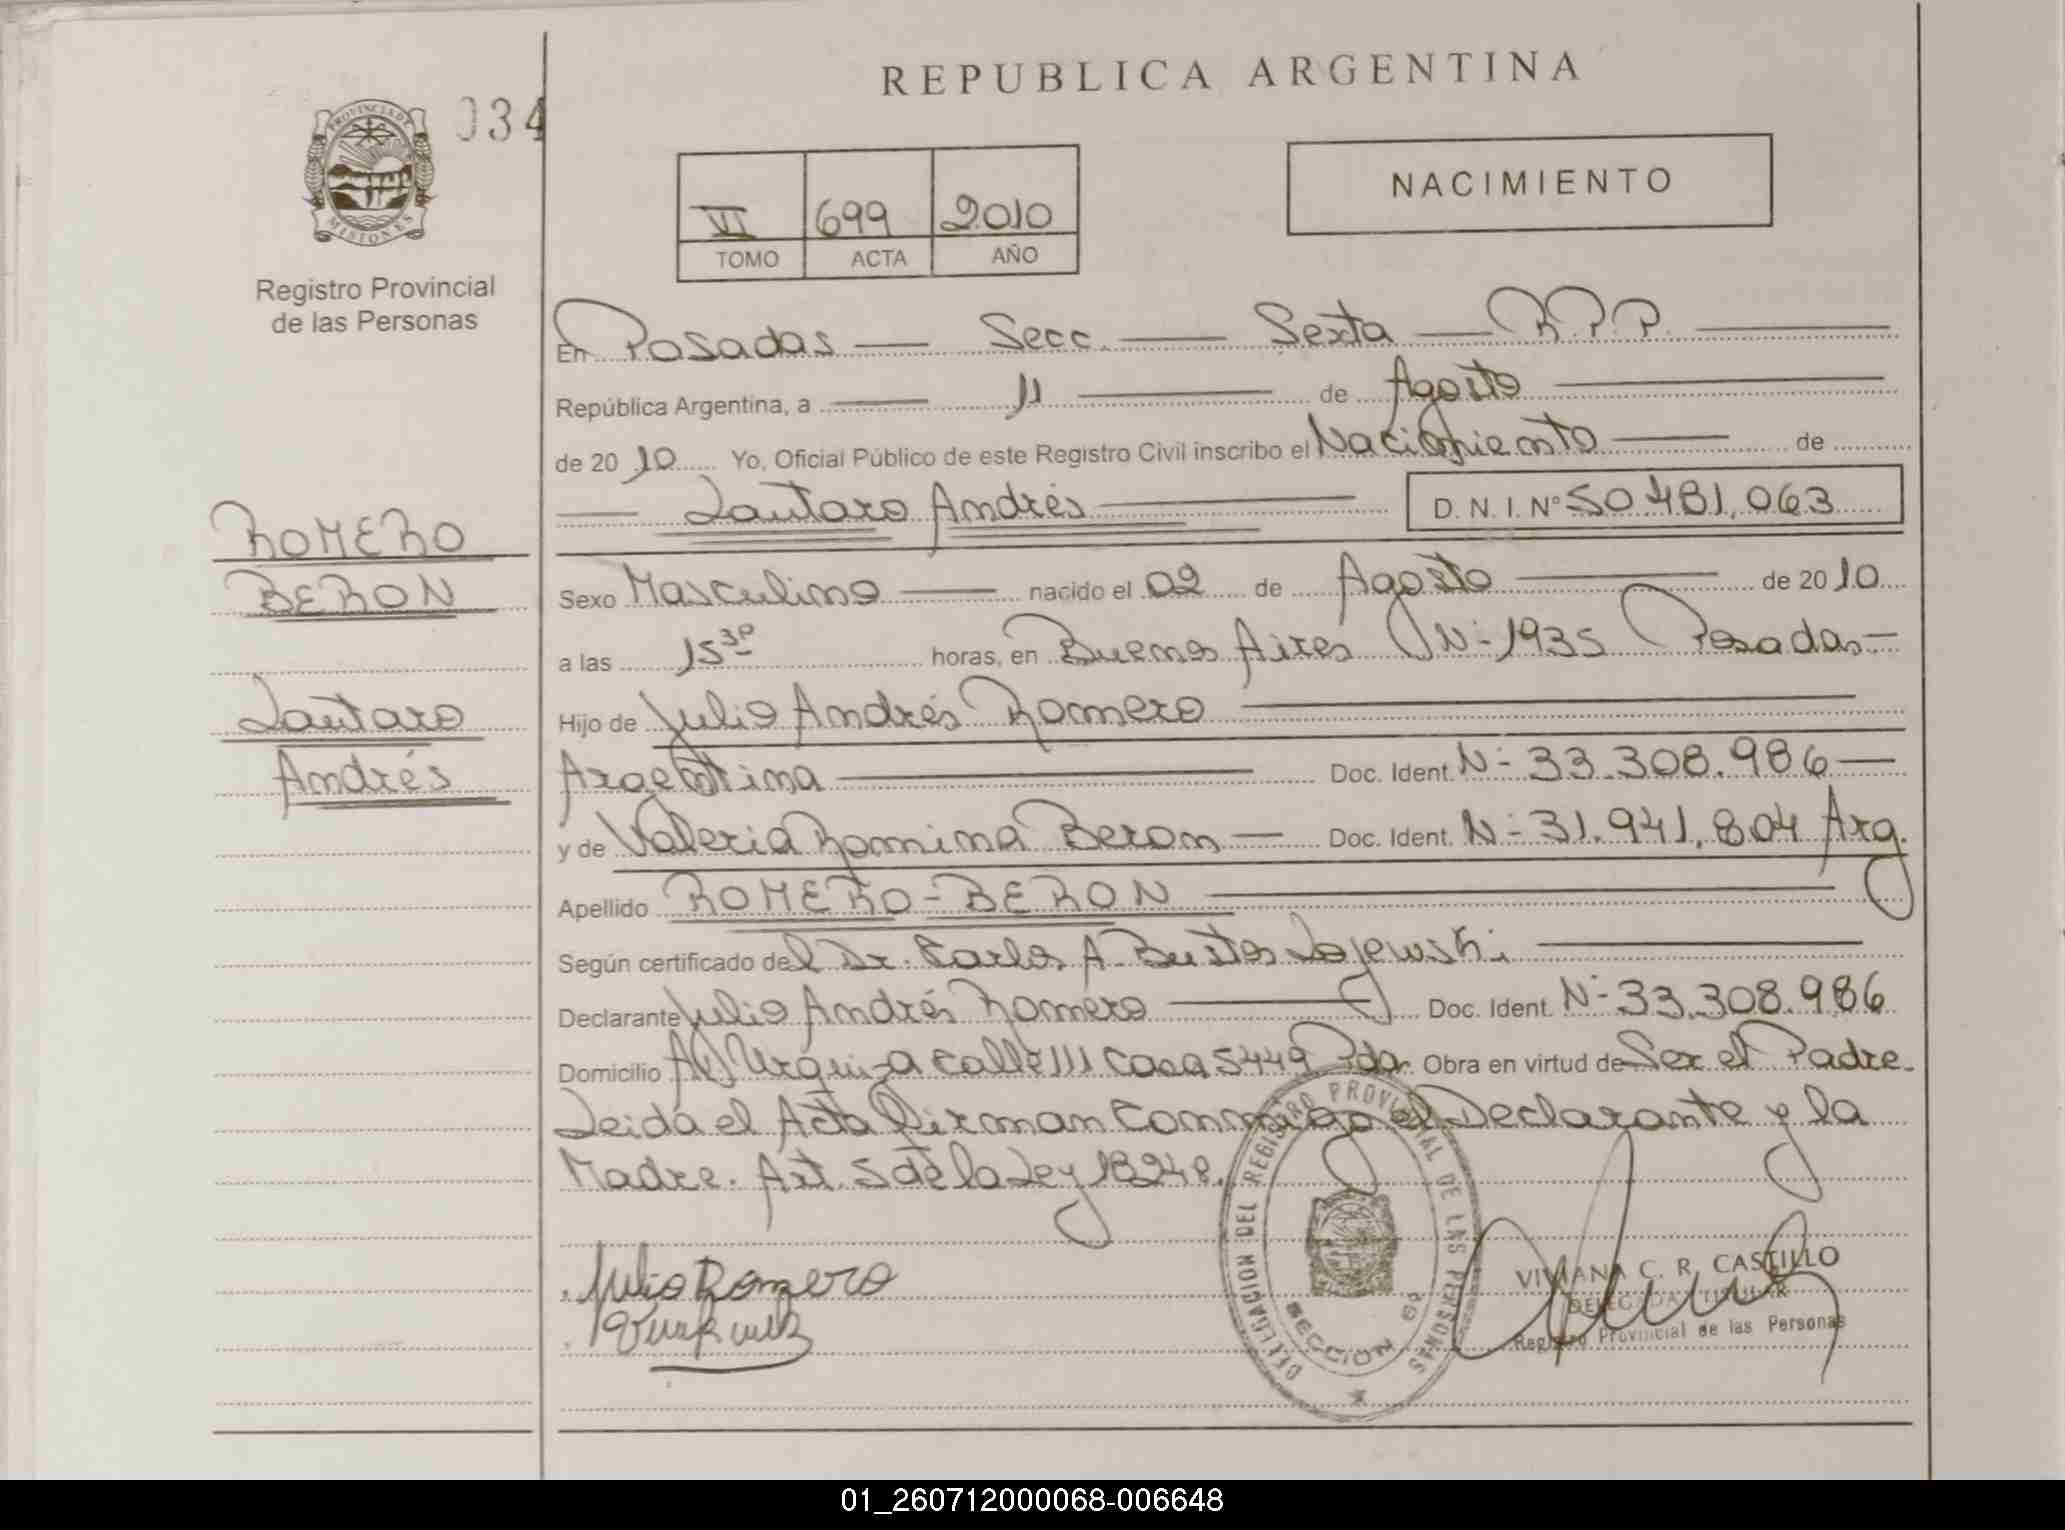 REPUBLICA ARGENTINA
PROVINCIA DE
MISIONES
034
Registro Provincial
de las Personas
VI 699 2010
TOMO ACTA AÑO
NACIMIENTO
En Posadas — Secc. — Sexta — R.P.P. —
República Argentina, a — 11 — de Agosto —
de 2010 Yo, Oficial Público de este Registro Civil inscribo el Nacimiento — de
— Lautaro Andrés — D. N. I. Nº 50.481.063
ROMERO
BERON
Lautaro
Andrés
Sexo Masculino — nacido el 02 de Agosto — de 2010
a las 15³⁰ horas, en Buenos Aires Nº 1935 Posadas —
Hijo de Julio Andrés Romero —
Argentina — Doc. Ident. Nº 33.308.986 —
y de Valeria Romina Beron — Doc. Ident. Nº 31.941.804 Arg.
Apellido ROMERO - BERON —
Según certificado del Dr. Carlos A. Bustos —
Declarante Julio Andrés Romero — Doc. Ident. Nº 33.308.986
Domicilio Urquiza calle 111 casa 5449 Pdas. Obra en virtud de Ser el Padre.
Leida el Acta firman conmigo el Declarante y la
Madre. Art. 5 de la Ley 18248.
Julio Romero
DELEGACION DEL REGISTRO PROVINCIAL DE LAS PERSONAS
SECCION 6ª
VIVIANA C. R. CASTILLO
DELEGADA TITULAR
Registro Provincial de las Personas
01_260712000068-006648